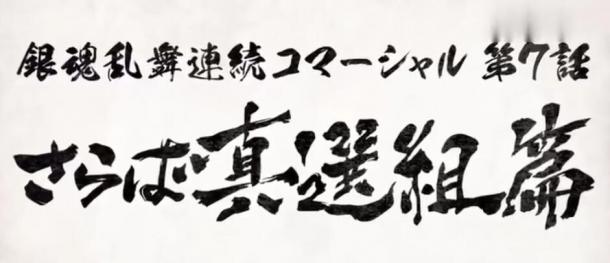 銀魂乱舞連続コマーシャル 第7話
さらば真選組篇